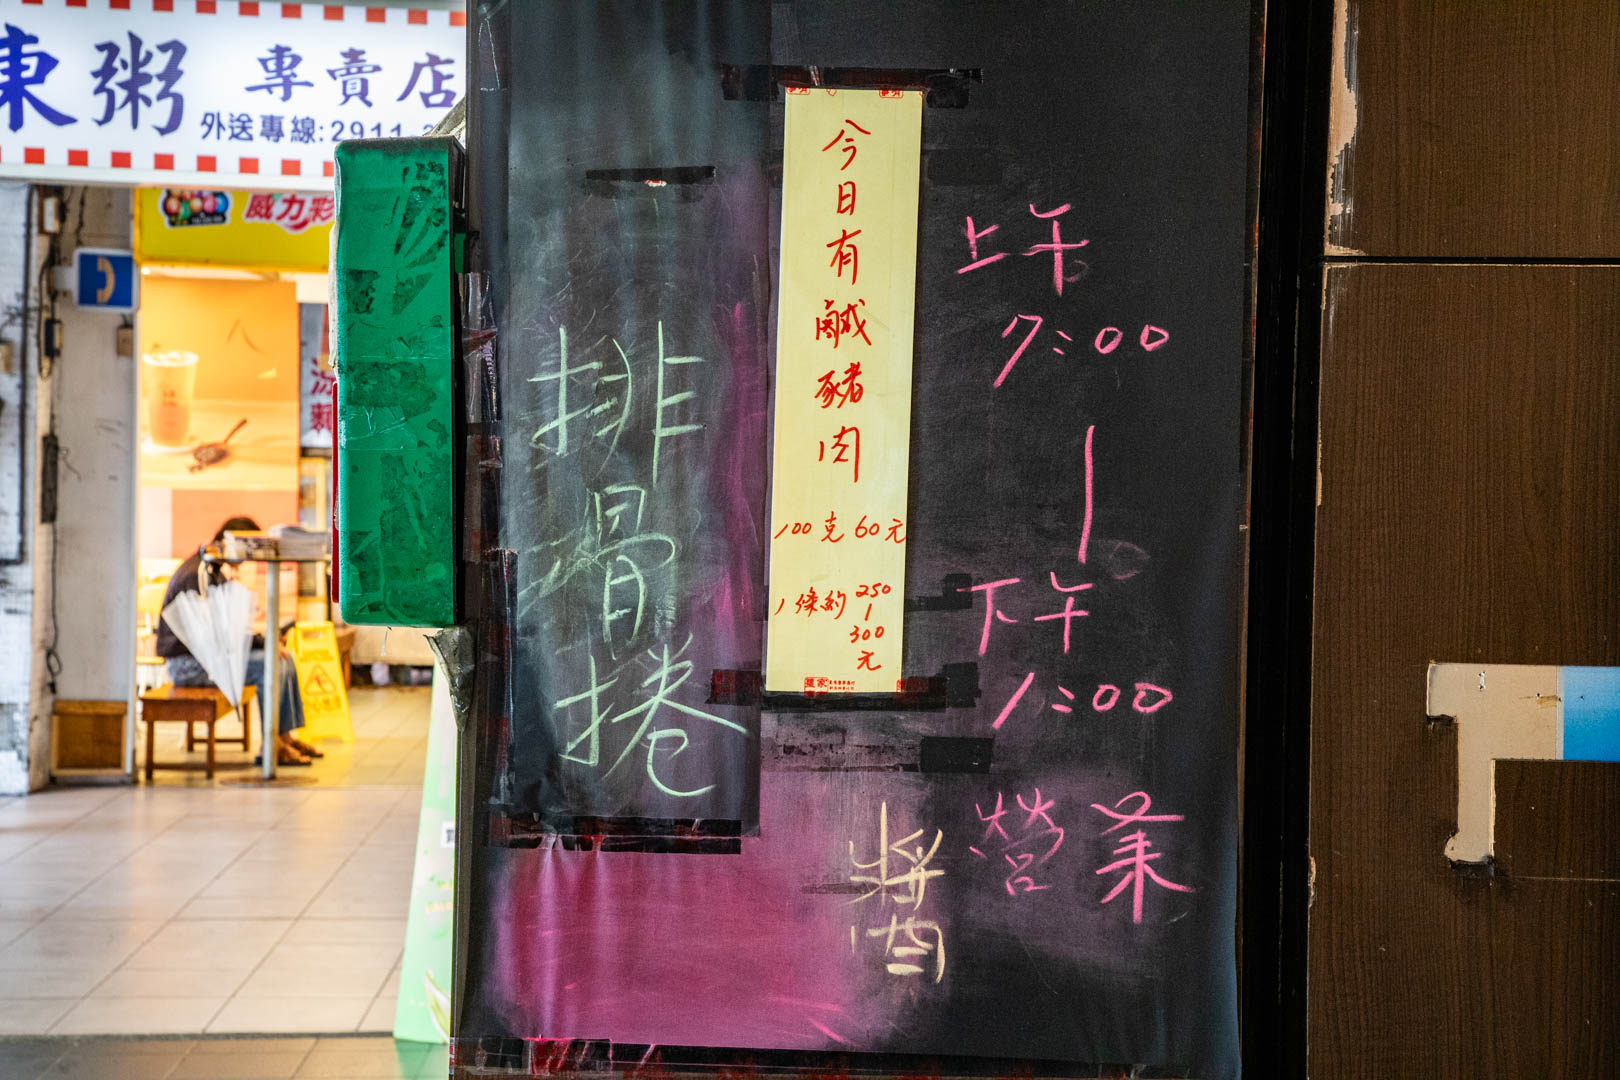 東粥 專賣店
外送專線:2911
威力彩
今日有鹹豬肉
100克 60元
1條約 250
|
300
元
排骨捲
上午
7:00
|
下午
1:00
營業
醬